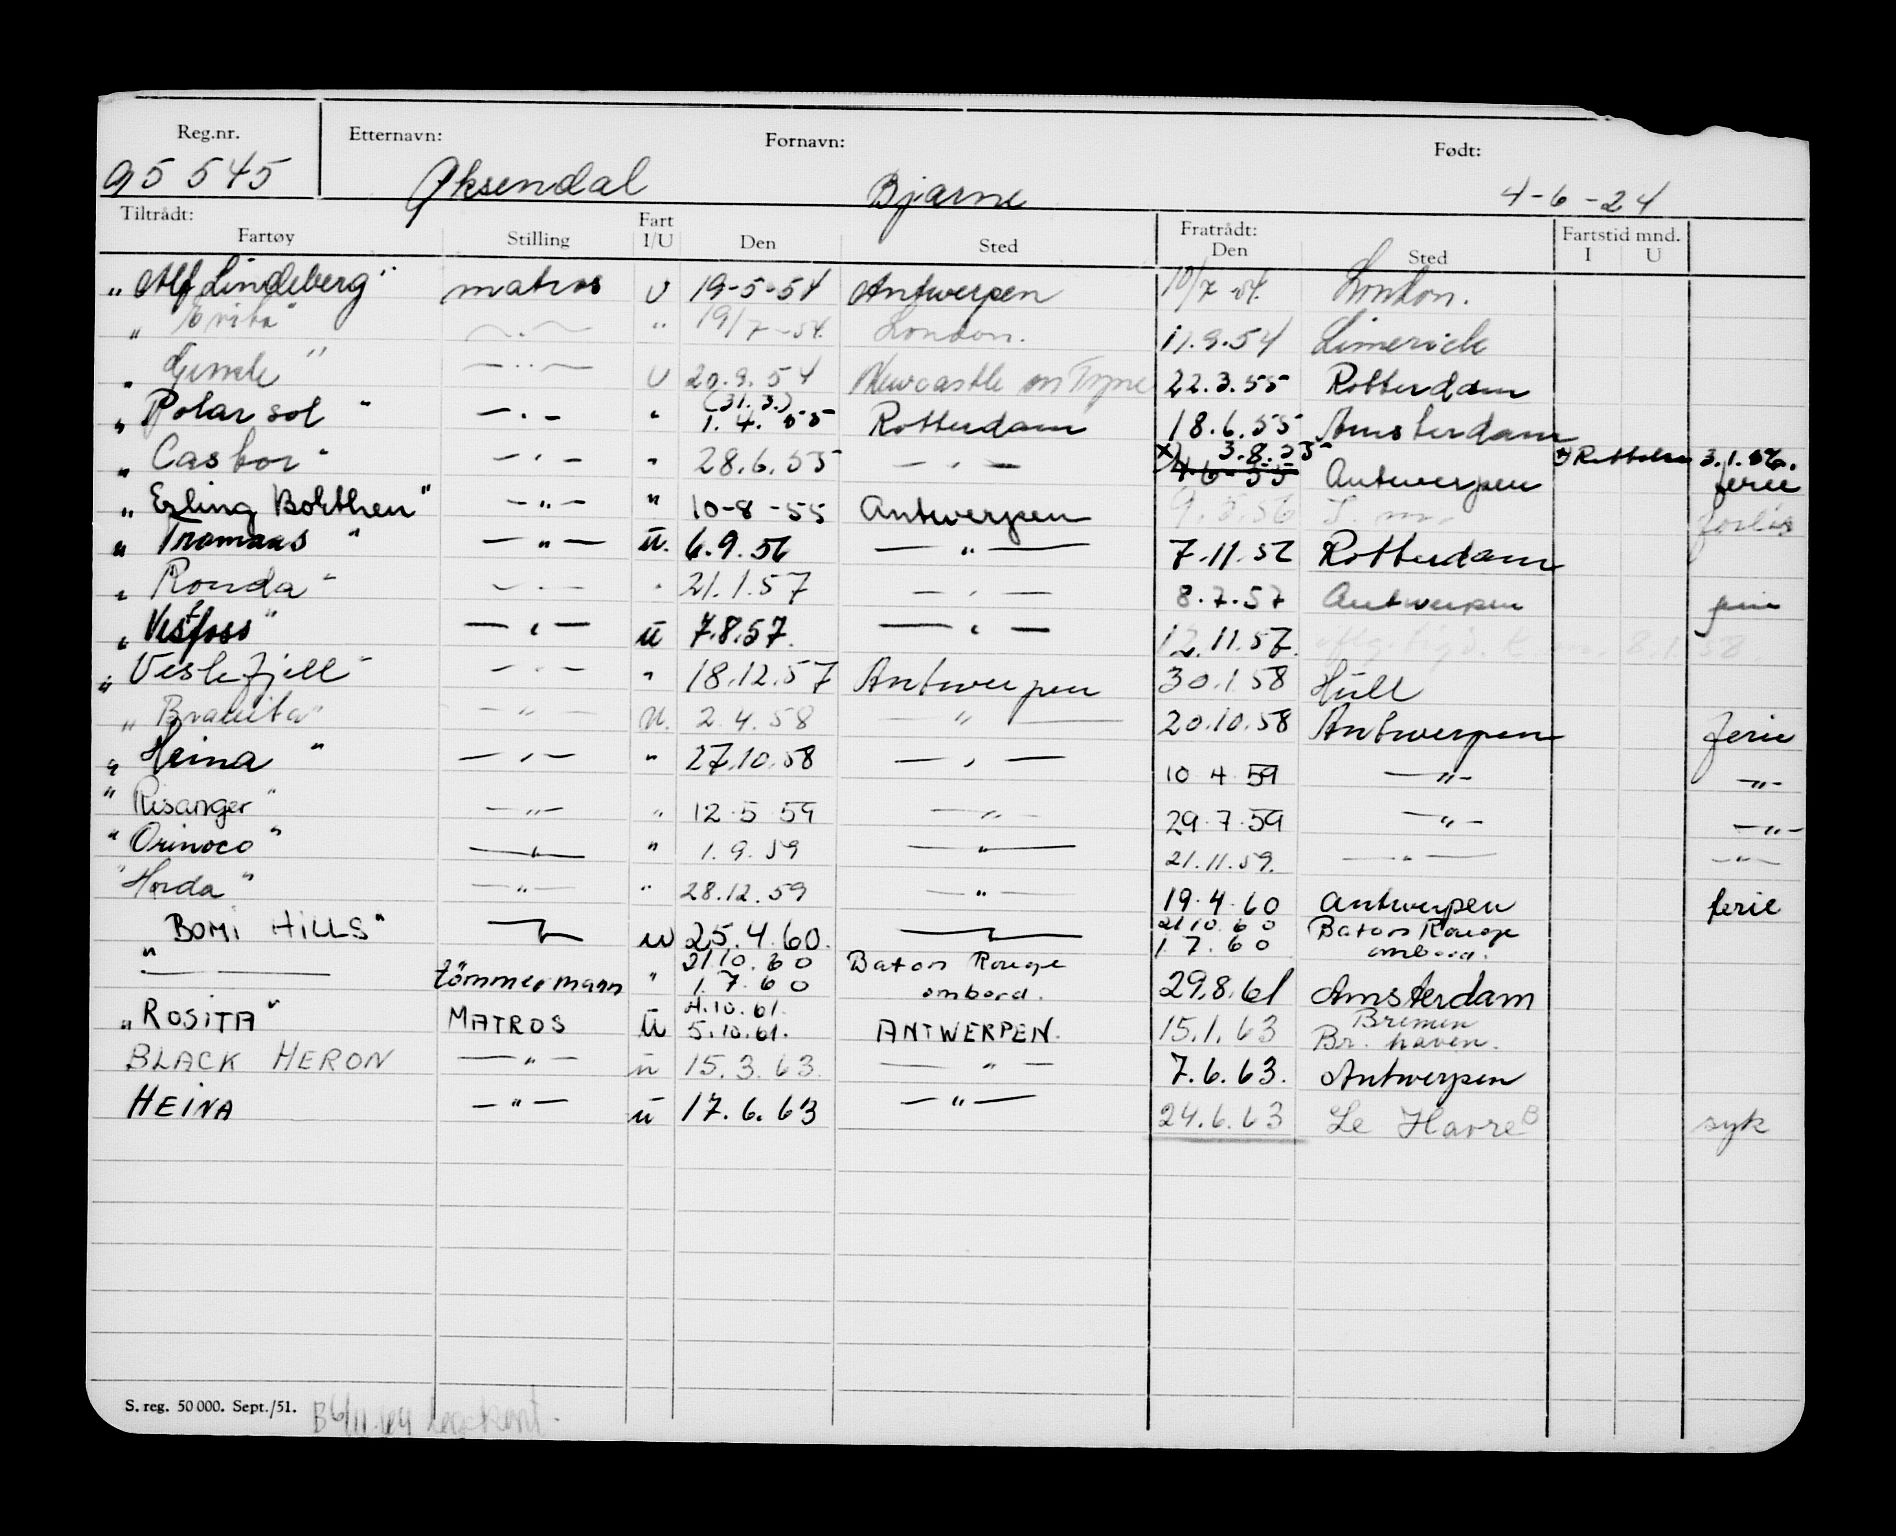 Reg.nr. Etternavn: Fornavn: Født:
95 545 Øksendal Bjarne 4-6-24
Tiltrådt: Fratrådt: Fartstid mnd.
Fartøy Stilling Fart I/U Den Sted Den Sted I U
"Alf Lindeberg" matros U 19-5-54 Antwerpen 10/7-54. London.
" Evita" —·— " 19/7-54. London. 11.9.54 Limerick
" Gimle" —··— U 20.9.54 Newcastle on Tyne 22.3.55 Rotterdam
(31.3.)
" Polarsol " —·— " 1.4.55 Rotterdam 18.6.55 Amsterdam
" Castor" —·— " 28.6.55 —·— x) 3.8.55 4-6-55 Antwerpen x) 3.1.56. ferie
" Erling Borthen" —"— " 10-8-55 Antwerpen 9.5.56 forlis
" Tromaas " —"— ü. 6.9.56 —"— 7.11.56 Rotterdam
" Ronda" —·— " 21.1.57 —·— 8.7.57 Antwerpen ferie
" Vestfoss" —"— ü 7.8.57. —"— 12.11.57. 8.1.58.
" Veslefjell" —·— " 18.12.57 Antwerpen 30.1.58 Hull
" —"— u. 2.4.58 —"— 20.10.58 Antwerpen ferie
" Heina " —·— " 27.10.58 —·— 10.4.59 —"— —"—
" Risanger" —"— " 12.5.59 —"— 29.7.59 —"— —"—
" Orinoco " —"— " 1.9.59 —"— 21.11.59. —"— —"—
" Horda " —"— " 28.12.59 —"— 19.4.60 Antwerpen ferie
" BOMI HILLS" —"— u 25.4.60. —"— 21.10.60 Baton Rouge
1.7.60 ombord.
—— tömmermann " 21.10.60 Baton Rouge
1.7.60 ombord. 29.8.61 Amsterdam
4.10.61.
" ROSITA " MATROS ü 5.10.61. ANTWERPEN. 15.1.63 Bremen
Br. haven.
BLACK HERON —"— ü 15.3.63. —"— 7.6.63. Antwerpen
HEINA —"— ü 17.6.63 —"— 24.6.63 Le Havre B syk
S. reg. 50 000. Sept./51.